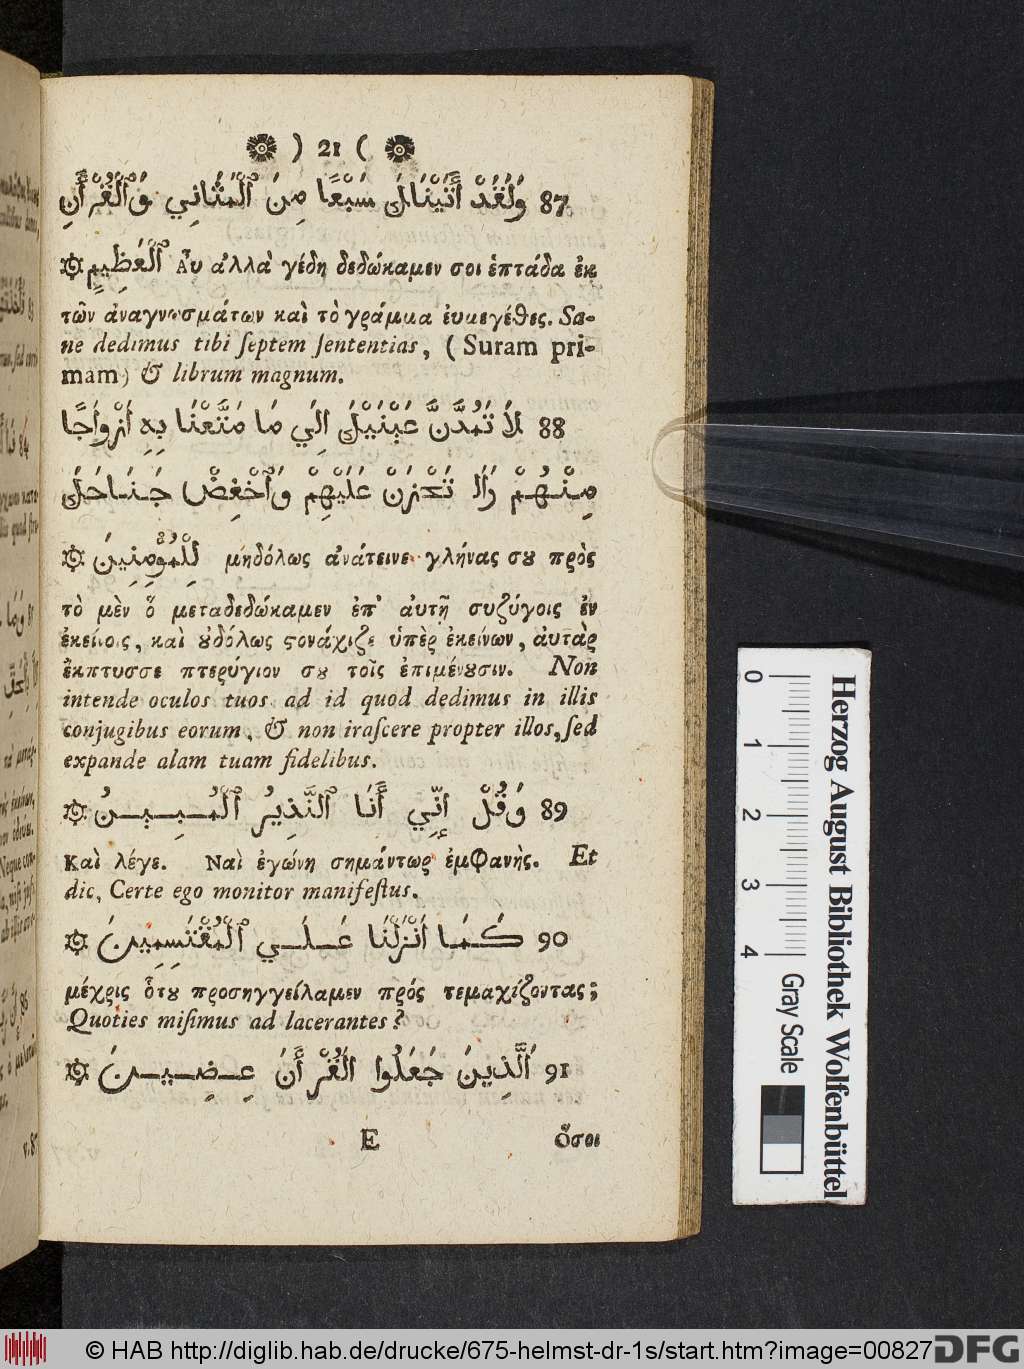 ) 21 (
87 وَلَقَدْ أَتَيْنَاكَ سَبْعًا مِنَ ٱلْمَثَانِي وَٱلْقُرْأَنِ
ٱلْعَظِيمِ Ἀυ ἀλλὰ γέδη δεδώκαμεν σοι ἑπτάδα ἐκ
τῶν ἀναγνωσμάτων καὶ τὸ γράμμα ἐυμεγέθες. Sa-
ne dedimus tibi ſeptem ſententias, (Suram pri-
mam) & librum magnum.
88 لاَ تَمُدَّنَّ عَيْنَيْكَ إِلَي مَا مَتَّعْنَا بِهِ أَزْوَاجًا
مِنْهُمْ وَلَا تَحْزَنْ عَلَيْهِمْ وَٱخْفِضْ جَنَاحَكَ
لِلْمُؤْمِنِينَ μηδόλως ἀνάτεινε γλήνας σȣ πρὸς
τὸ μὲν ὃ μεταδεδώκαμεν ἐπ' ἀυτῆ συζύγοις ἐν
ἐκείνοις, καὶ ȣδόλως ϛονάχιζε ὑπὲρ ἐκείνων, ἀυτὰρ
ἔκπτυσσε πτερύγιον σȣ τοῖς ἐπιμένȣσιν. Non
intende oculos tuos ad id quod dedimus in illis
conjugibus eorum, & non iraſcere propter illos, ſed
expande alam tuam fidelibus.
89 وَقُلْ إِنِّي أَنَا ٱلنَّذِيرُ ٱلْمُبِينُ
Καὶ λέγε. Ναὶ ἐγώνη σημάντωρ ἐμφανὴς. Et
dic, Certe ego monitor manifeſtus.
90 كَمَا أَنْزَلْنَا عَلَي ٱلْمُقْتَسِمِينَ
μέχρις ὅτȣ προσηγγείλαμεν πρός τεμαχίζοντας;
Quoties miſimus ad lacerantes?
91 ٱلَّذِينَ جَعَلُوا ٱلْقُرْأَنَ عِضِينَ
E ὅσοι
0 1 2 3 4
Gray Scale
Herzog August Bibliothek Wolfenbüttel
© HAB http://diglib.hab.de/drucke/675-helmst-dr-1s/start.htm?image=00827
DFG